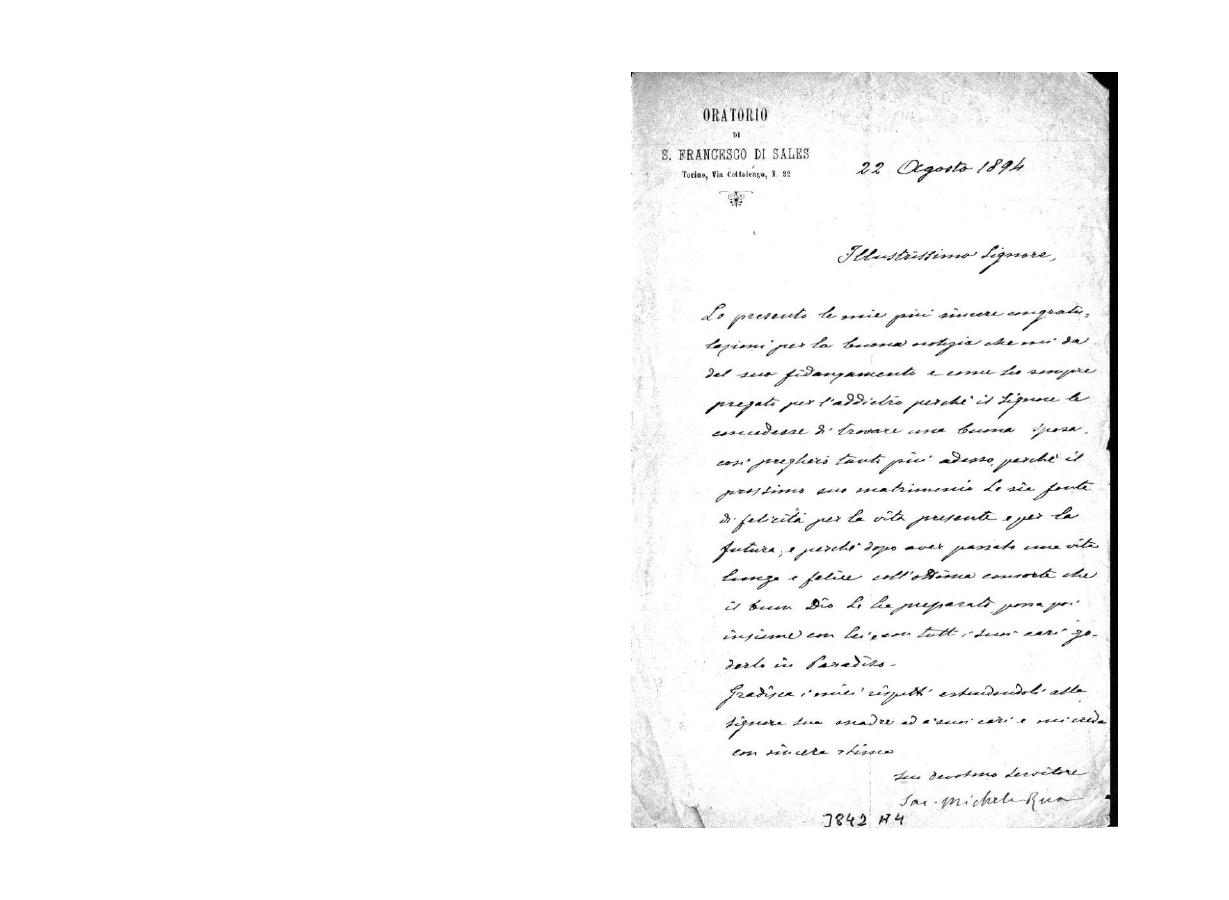 ORATORIO
DI
S. FRANCESCO DI SALES
Torino, Via Cottolengo, N. 32
22 Agosto 1894
Illustrissimo Signore,
Le presento le mie più sincere congratu=
lazioni per la buona notizia che mi da
del suo fidanzamento e come ho sempre
pregato per l'addietro perchè il Signore le
concedesse di trovare una buona sposa,
così pregherò tanto più adesso, perchè il
prossimo suo matrimonio Le sia fonte
di felicità per la vita presente e per la
futura, e perchè dopo aver passato una vita
lunga e felice coll'ottima consorte che
il buon Dio Le ha preparato, possa poi
insieme con lei e con tutti i suoi cari go-
derlo in Paradiso.
Gradisca i miei rispetti estendendoli alla
signora sua madre ed a' suoi cari e mi creda
con sincera stima
Suo devotmo Servitore
Sac. Michele Rua
3842 A4